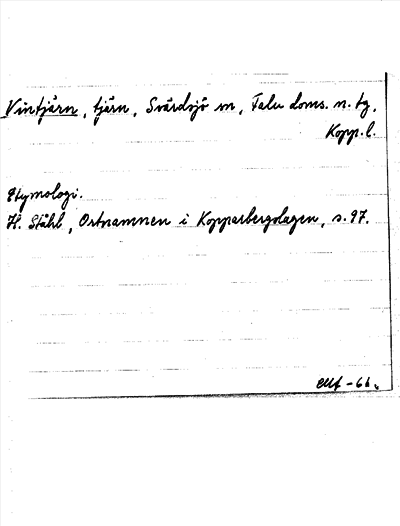 Vintjärn, tjärn, Svärdsjö sn, Falu doms. n. tg,
Kopp. l.
Etymologi.
H. Ståhl, Ortnamnen i Kopparbergslagen, s. 97.
-66.